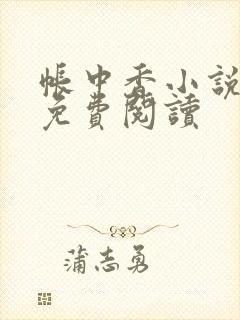 帳中香小說
免費閱讀
蒲志勇